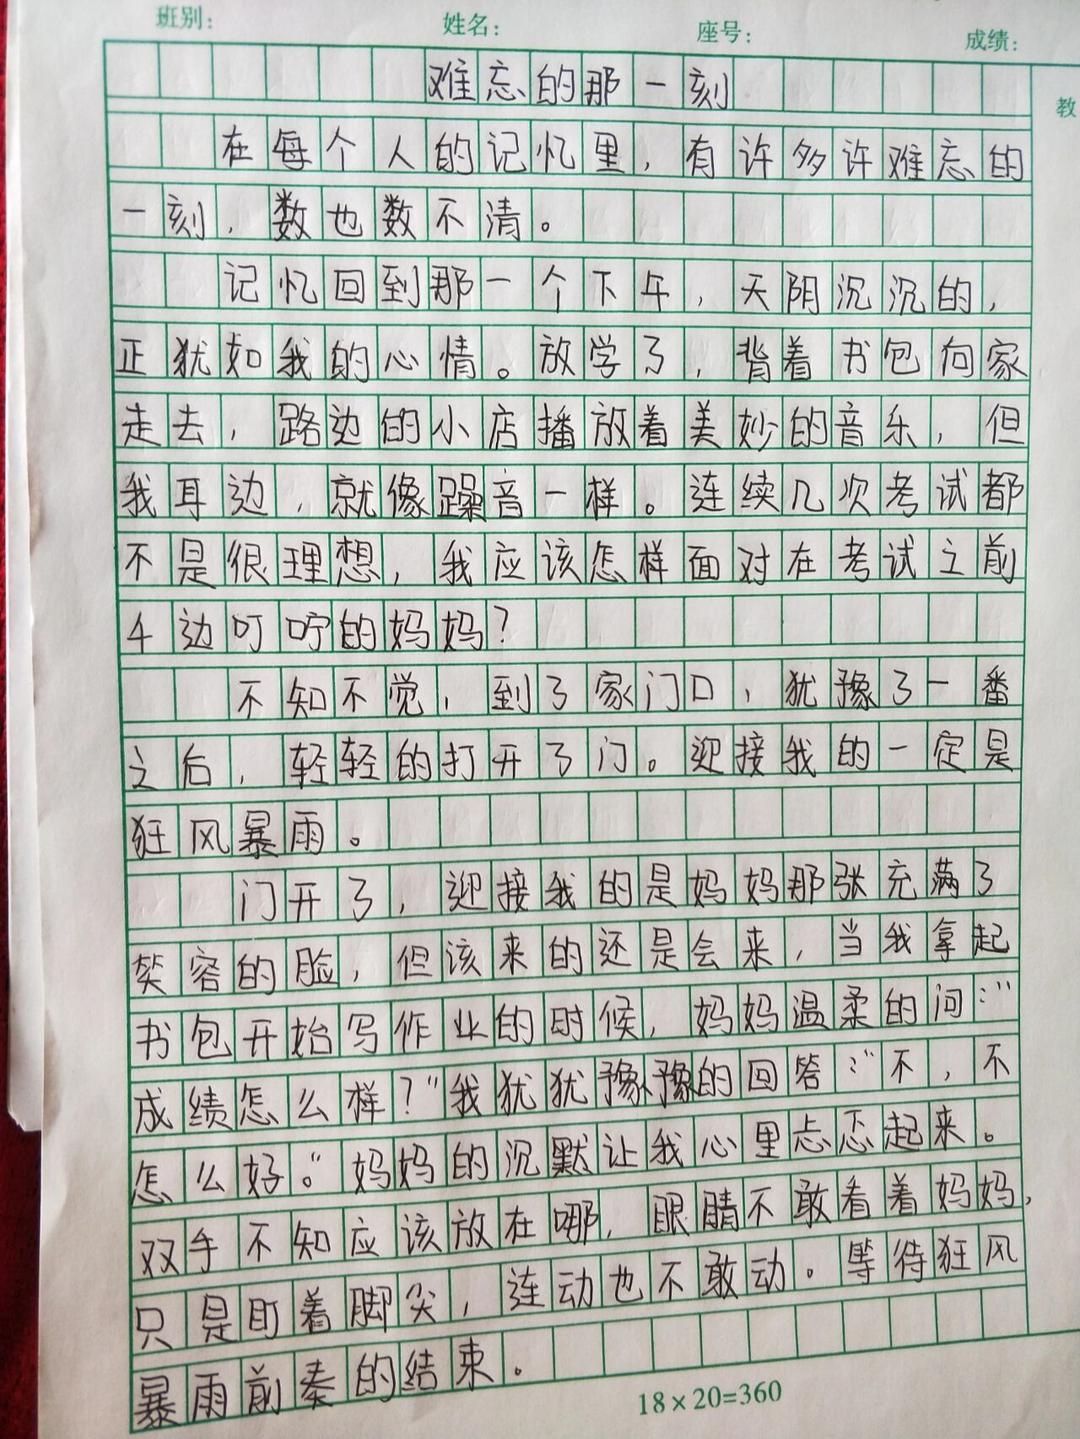 班别： 姓名： 座号： 成绩：
难忘的那一刻
教
在每个人的记忆里，有许多许难忘的
一刻，数也数不清。
记忆回到那一个下午，天阴沉沉的，
正犹如我的心情。放学了，背着书包向家
走去，路边的小店播放着美妙的音乐，但
我耳边，就像躁音一样。连续几次考试都
不是很理想，我应该怎样面对在考试之前
千边叮咛的妈妈？
不知不觉，到了家门口，犹豫了一番
之后，轻轻的打开了门。迎接我的一定是
狂风暴雨。
门开了，迎接我的是妈妈那张充满了
笑容的脸，但该来的还是会来，当我拿起
书包开始写作业的时候，妈妈温柔的问：“
成绩怎么样？”我犹犹豫豫的回答：“不，不
怎么好。”妈妈的沉默让我心里忐忑起来。
双手不知应该放在哪，眼睛不敢看着妈妈，
只是盯着脚尖，连动也不敢动。等待狂风
暴雨前奏的结束。
18×20=360